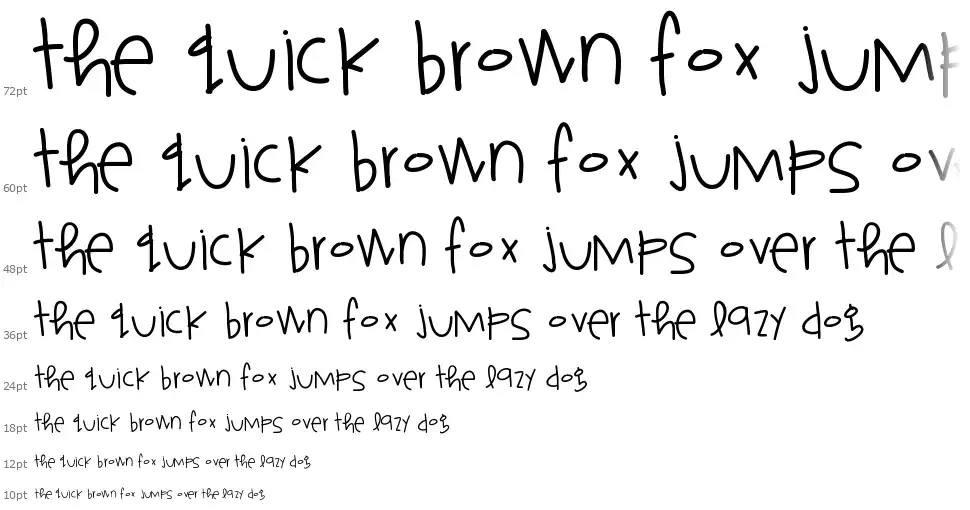 72pt the quick brown fox jump
60pt the quick brown fox jumps ov
48pt the quick brown fox jumps over the l
36pt the quick brown fox jumps over the lazy dog
24pt the quick brown fox jumps over the lazy dog
18pt the quick brown fox jumps over the lazy dog
12pt the quick brown fox jumps over the lazy dog
10pt the quick brown fox jumps over the lazy dog